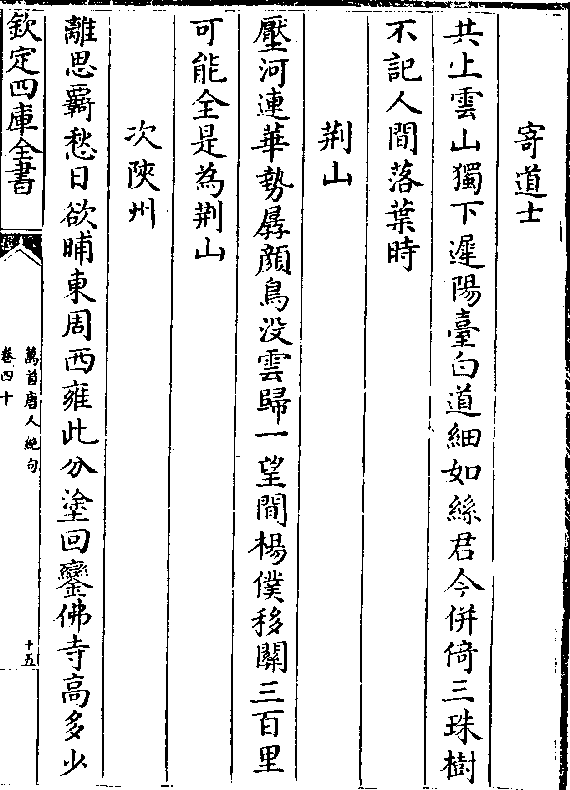 寄道士
共上雲山獨下遲陽臺白道細如絲君今併倚三珠樹
不記人間落葉時
荆山
壓河連華勢孱顔鳥没雲歸一望間楊僕移關三百里
可能全是為荆山
次陜州
離思覊愁日欲晡東周西雍此分塗回鑾佛寺高多少
欽定四庫全書
萬首唐人絶句
卷四十
十五